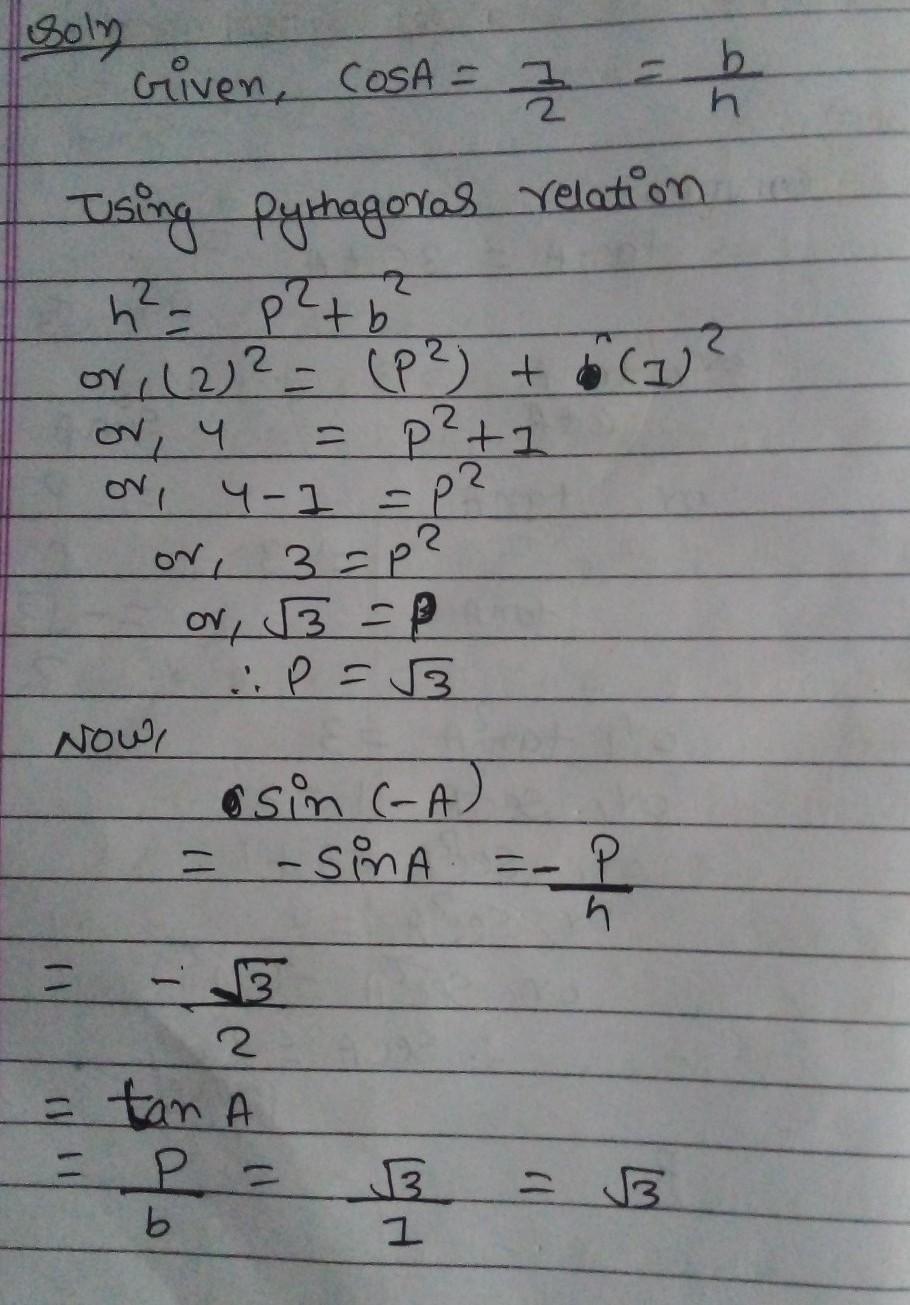 Soln
Given, cosA = 1/2 = b/h
Using pythagoras relation
h² = p² + b²
or, (2)² = (p²) + (1)²
or, 4 = p² + 1
or, 4 - 1 = p²
or, 3 = p²
or, √3 = p
∴ P = √3
Now,
sin (-A)
= - sin A = - P/h
= - √3/2
= tan A
= P/b = √3/1 = √3